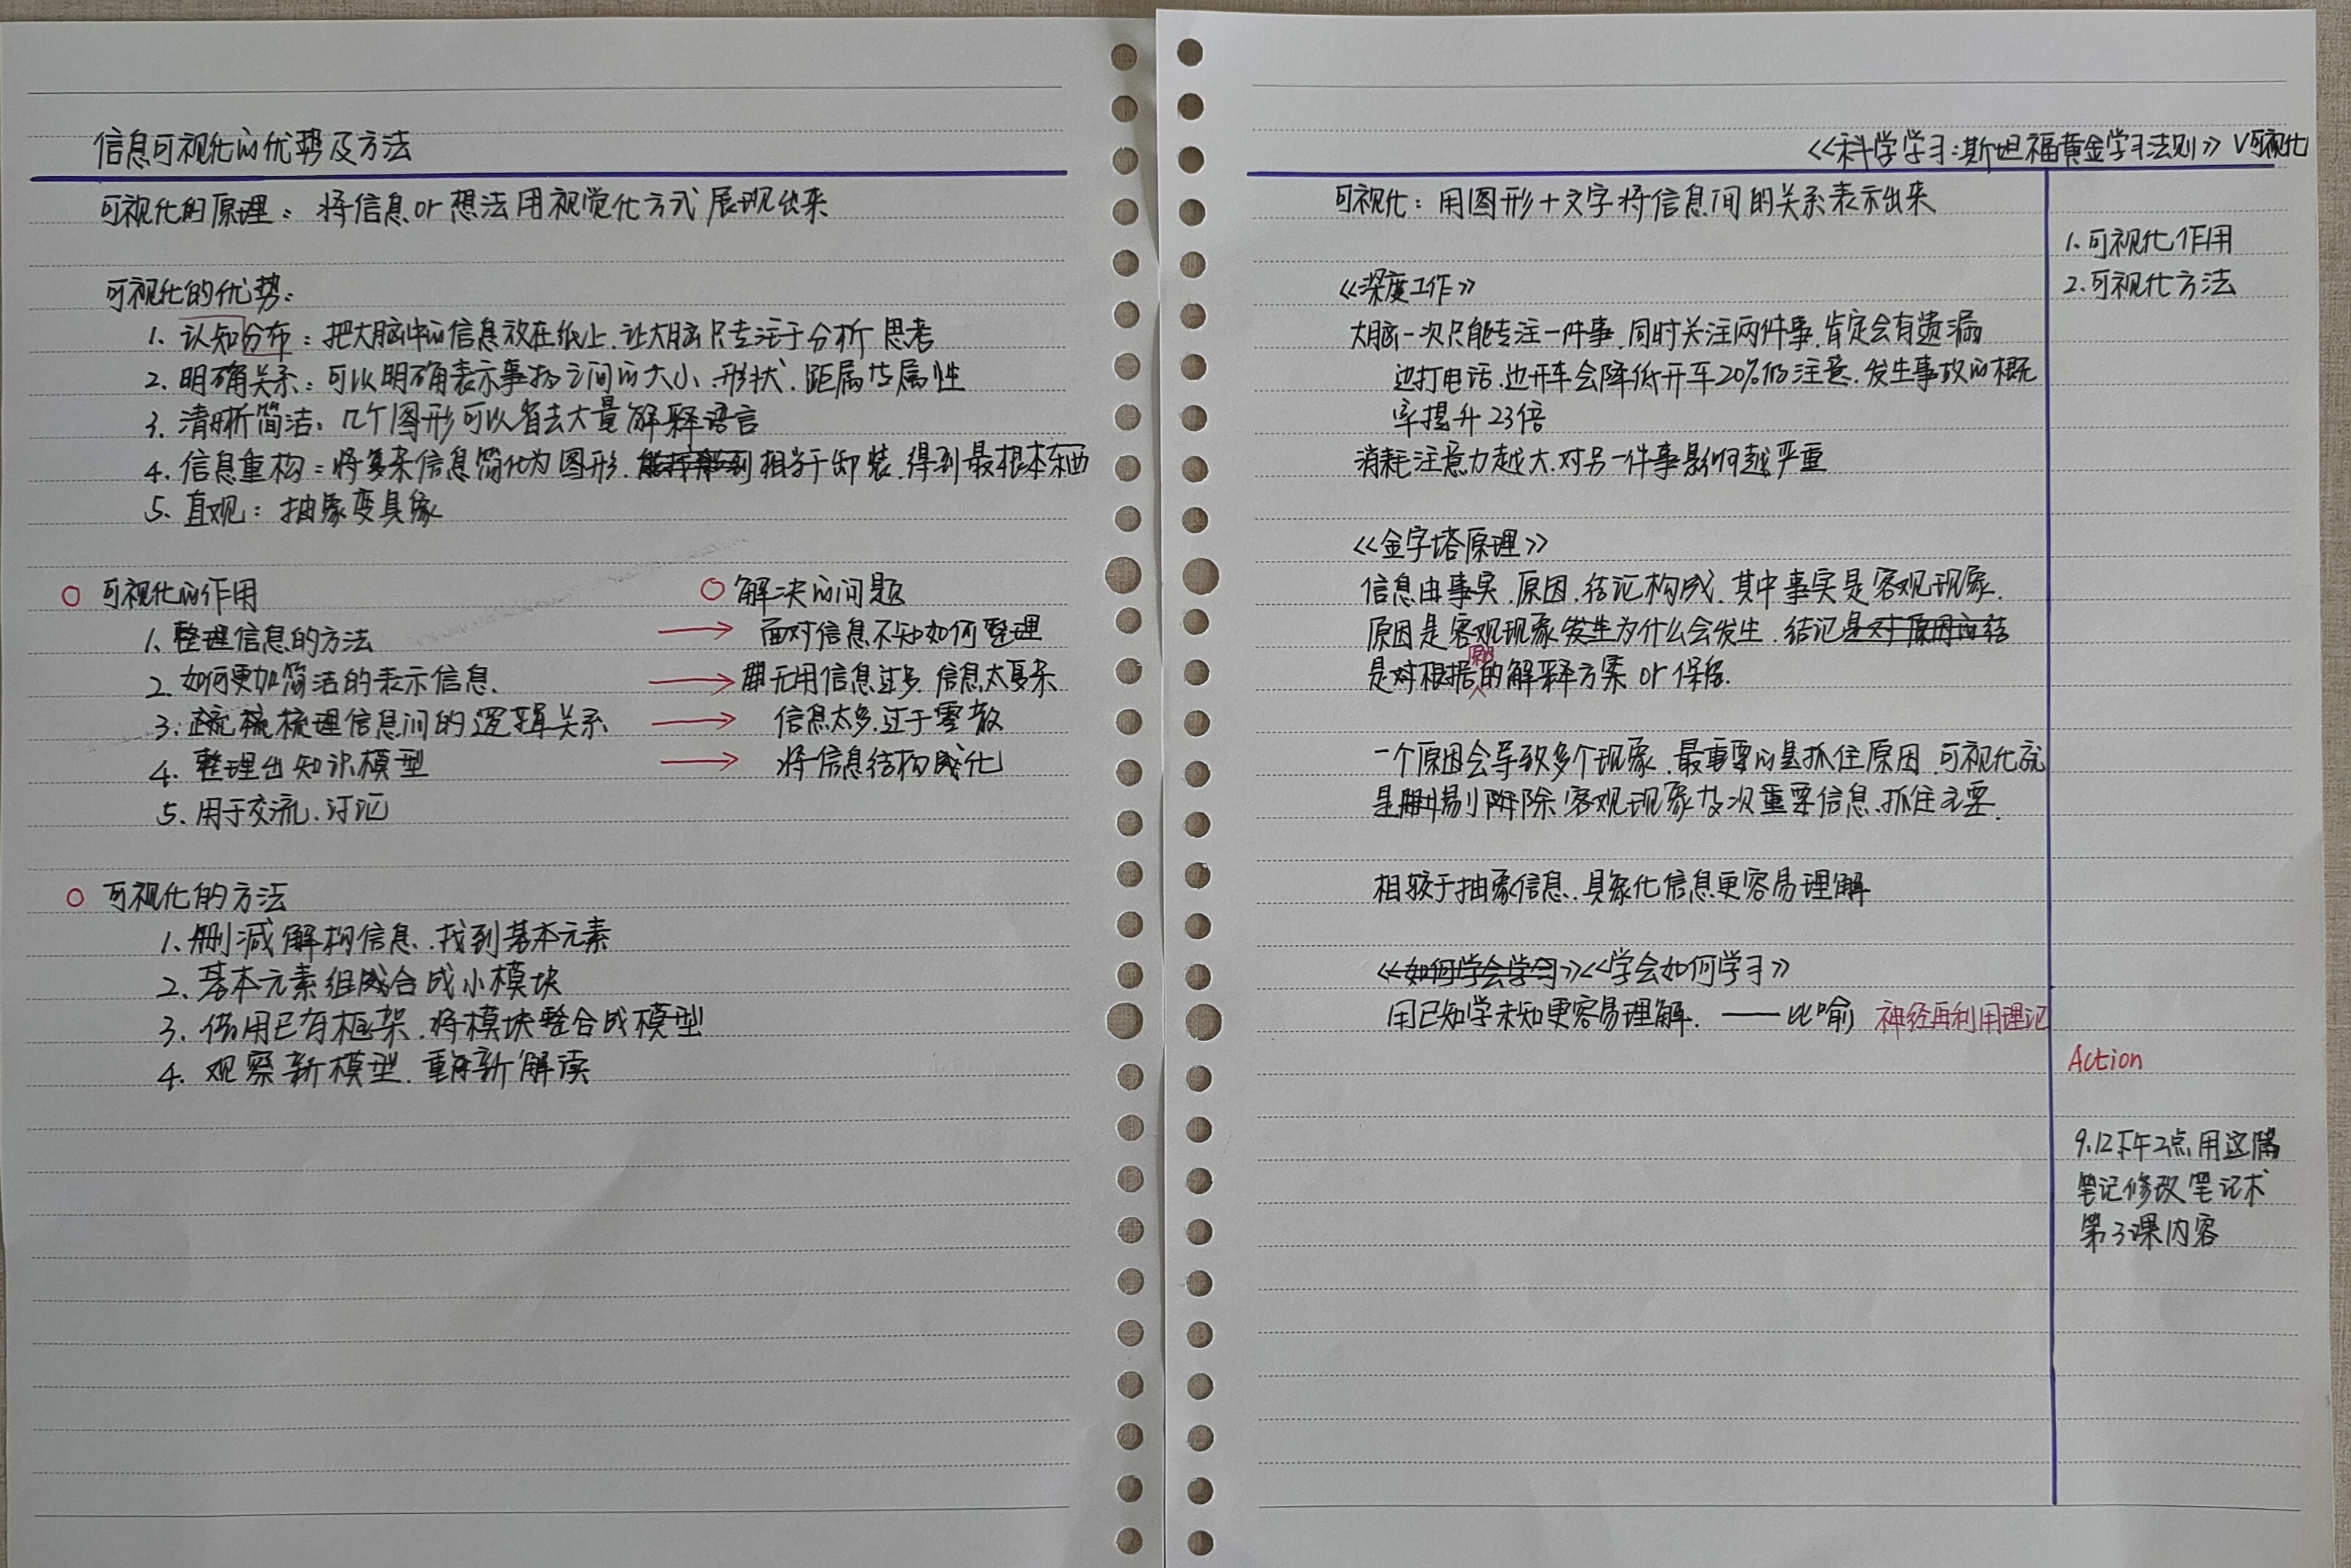 信息可视化的优势及方法
可视化的原理：将信息or想法用视觉化方式展现出来
可视化的优势：
1. 认知分布：把大脑中的信息放在纸上.让大脑只专注于分析思考
2. 明确关系：可以明确表示事物之间的大小.形状.距属性属性
3. 清晰简洁：几个图形可以省去大量解释语言
4. 信息重构：将复杂信息简化为图形.相当于卸装.得到最根本东西
5. 直观：抽象变具象
可视化的作用 解决的问题
1. 整理信息的方法 → 面对信息不知如何整理
2. 如何更加简洁的表示信息. → 无用信息过多 信息太复杂
3. 梳理信息间的逻辑关系 → 信息太多.过于零散
4. 整理出知识模型 → 将信息结构成化
5. 用于交流.讨论
可视化的方法
1. 删减解构信息.找到基本元素
2. 基本元素组合成小模块
3. 借用已有框架.将模块整合成模型
4. 观察新模型.重新解读
《科学学习:斯坦福黄金学习法则》V可视化
可视化：用图形+文字将信息间的关系表示出来
1. 可视化作用
2. 可视化方法
《深度工作》
大脑一次只能专注一件事.同时关注两件事.肯定会有遗漏
边打电话.边开车会降低开车20%的注意.发生事故的概
率提升23倍
消耗注意力越大.对另一件事影响越严重
《金字塔原理》
信息由事实.原因.结论构成.其中事实是客观现象.
原因是客观现象发生为什么会发生.结论是对原因的结
是对根据原因的解释方案or保留.
一个原因会导致多个现象.最重要的是抓住原因.可视化就
是剔除客观现象及次重要信息.抓住主要.
相较于抽象信息.具象化信息更容易理解
《如何学会学习》《学会如何学习》
用已知学未知更容易理解. —— 比喻 神经再利用理论
Action
9.12下午2点用这篇
笔记修改笔记术
第3课内容